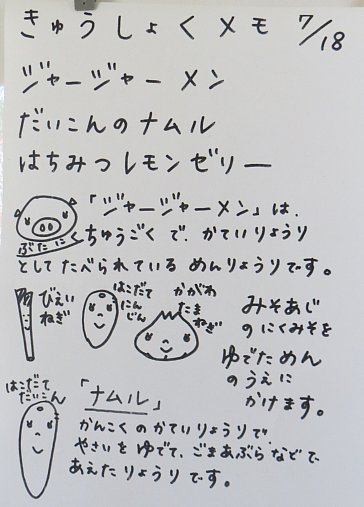 きゅうしょくメモ 7/18
ジャージャーメン
だいこんのナムル
はちみつレモンゼリー
ぶたにく
「ジャージャーメン」は、
ちゅうごくで、かていりょうり
としてたべられている めんりょうりです。
びえい
ねぎ
はこだて
にんじん
かがわ
たま
ねぎ
みそあじ
のにくみそを
ゆでためん
のうえに
かけます。
はこだて
だいこん
「ナムル」
かんこくのかていりょうりで、
やさいをゆでて、ごまあぶらなどで
あえたりょうりです。